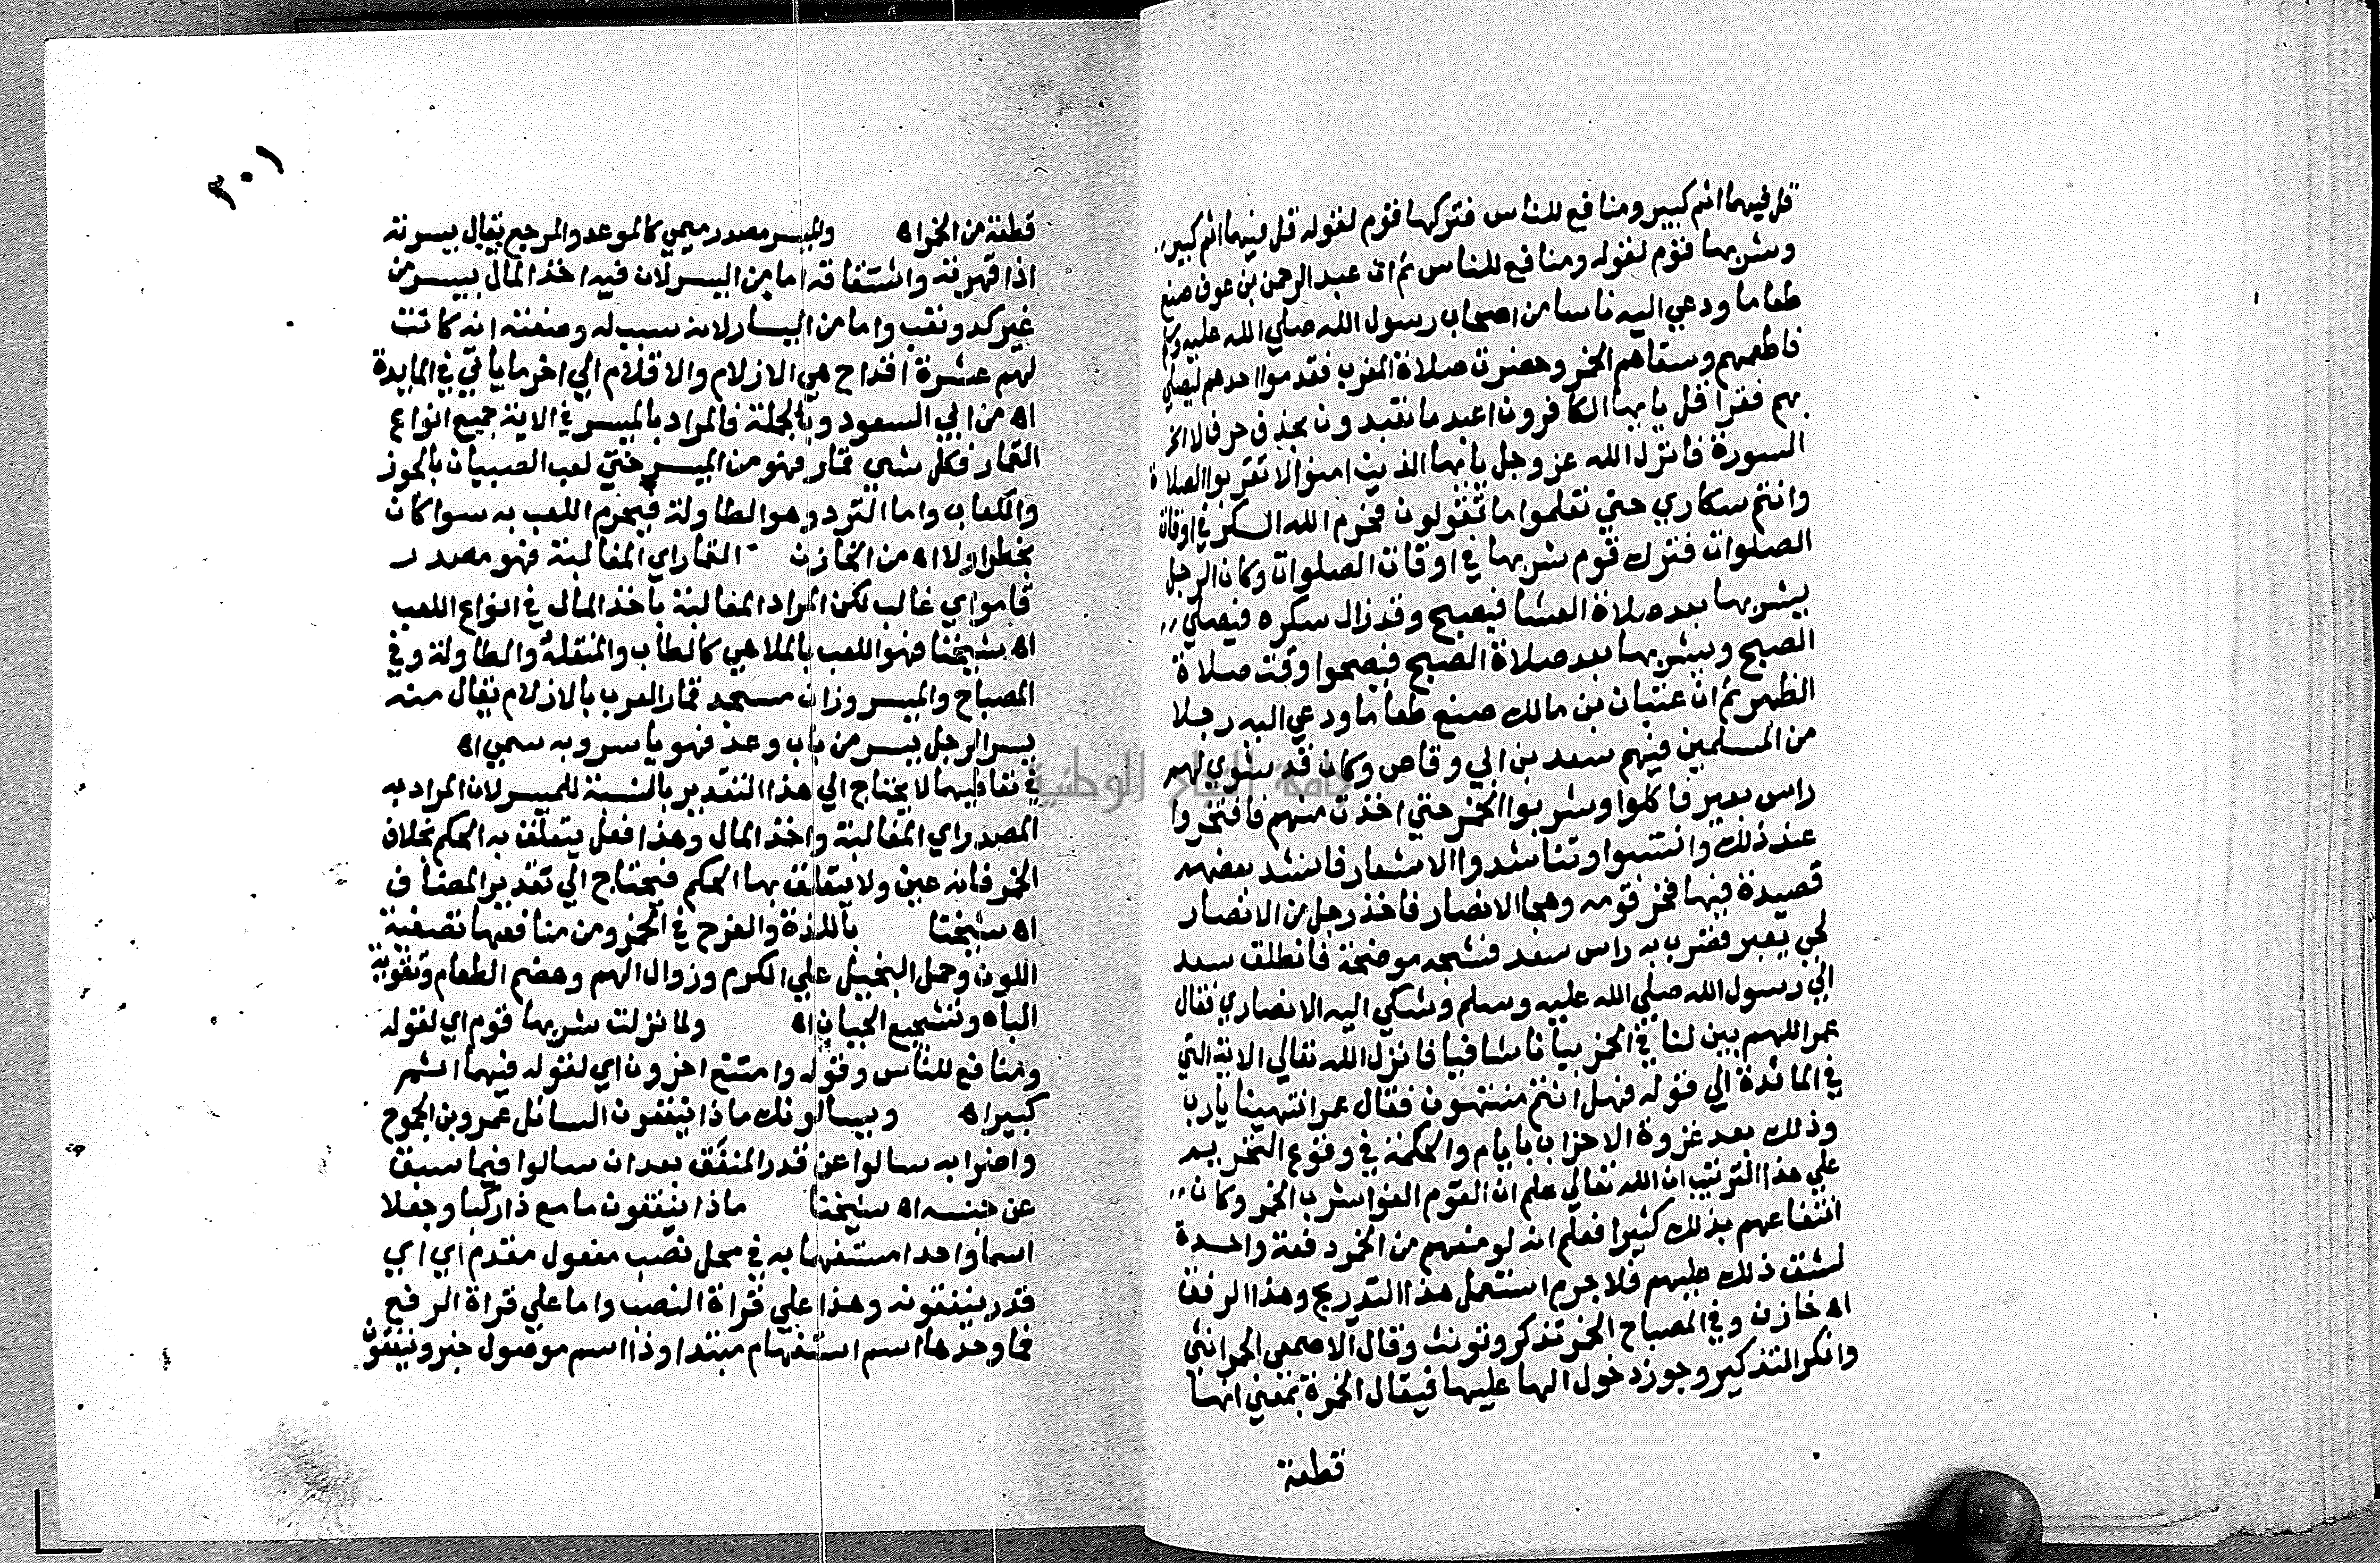 قل فيهما اثم كبير ومنافع للناس فتركها قوم لقوله قل فيهما اثم كبير
وشربها قوم لقوله ومنافع للناس ثم ان عبد الرحمن بن عوف صنع
طعاما ودعي اليه ناسا من اصحاب رسول الله صلي الله عليه وسلم
فاطعمهم وسقاهم الخمر وحضرت صلاة المغرب فقدموا احدهم ليصلي
بهم فقرا قل يا يها الكافرون اعبد ما تعبدون بحذف حرف لا اخر
السورة فانزل الله عز وجل يا يها الذين امنوا لا تقربوا الصلاة
وانتم سكاري حتي تعلموا ما تقولون فحرم الله السكر في اوقات
الصلوات فترك قوم شربها في اوقات الصلوات وكان الرجل
يشربها بعد صلاة العشا فيصبح وقد زال سكره فيصلي
الصبح ويشربها بعد صلاة الصبح فيصحوا وقت صلاة
الظهر ثم ان عتبان بن مالك صنع طعاما ودعي اليه رجلا
من المسلمين فيهم سعد بن ابي وقاص وكان قد شوي لهم
راس بعير فاكلوا وشربوا الخمر حتي اخذت منهم فافتخروا
عند ذلك وانتسبوا وتناشدوا الاشعار فانشد بعضهم
قصيدة فيها فخر قومه وهجا الانصار فاخذ رجل من الانصار
لحي بعير فضرب به راس سعد فشجه موضحة فانطلق سعد
الي رسول الله صلي الله عليه وسلم وشكي اليه الانصاري فقال
عمر اللهم بين لنا في الخمر بيانا شافيا فانزل الله تعالي الاية التي
في المائدة الي قوله فهل انتم منتهون فقال عمر انتهينا يارب
وذلك بعد غزوة الاحزاب بايام والحكمة في وقوع التحريم
علي هذا الترتيب ان الله تعالي علم ان القوم الفوا شرب الخمر وكان
انتفاعهم بذلك كثيرا فعلم انه لو منعهم من الخمر دفعة واحدة
لشق ذلك عليهم فلا جرم استعمل هذا التدريج وهذا الرفق
اه خازن وفي المصباح الخمر تذكر وتونث وقال الاصمعي الخمر انثي
وانكر التذكير وجوز دخول الها عليها فيقال الخمرة بمعني انها
قطعة
٣٠١
قطعة من الخمر اه والميسر مصدر ميمي كالموعد والمرجع يقال يسرته
اذا قهرته واشتقاقه اما من اليسر لان فيه اخذ المال بيسر من
غير كد وتعب واما من اليسار لانه سبب له وصفته انه كانت
لهم عشرة اقداح هي الازلام والاقلام الي اخر ما ياتي في المايدة
اه من ابي السعود وبالجملة فالمراد بالميسر في الاية جميع انواع
القمار فكل شي قمار فهو من الميسر حتي لعب الصبيان بالجوز
والكعاب واما النرد وهو الطاولة فيحرم اللعب به سوا كان
بخطر او لا اه من الخازن القمار اي المغالبة فهو مصدر
قامر اي غالب لكن المراد المغالبة باخذ المال في انواع اللعب
اه شيخنا فهو اللعب بالملاهي كالطاب والمنقلة والطاولة وفي
المصباح والميسر وزان مسجد قمار العرب بالازلام يقال منه
يسر الرجل ييسر من باب وعد فهو ياسر وبه سمي اه
في تعاطيهما لا يحتاج الي هذا التقدير بالنسبة للميسر لان المراد به
المصدر اي المغالبة واخذ المال وهذا فعل يتعلق به الحكم بخلاف
الخمر فانه عين ولا يتعلق بها الحكم فيحتاج الي تقدير المضاف
اه شيخنا باللذة والفرح في الخمر ومن منافعها تصفية
اللون وحمل البخيل علي الكرم وزوال الهم وهضم الطعام وتقوية
الباه وتشجيع الجبان اه ولما نزلت شربها قوم اي لقوله
ومنافع للناس وقوله وامتنع اخرون اي لقوله فيهما اثم
كبير اه ويسالونك ماذا ينفقون السائل عمرو بن الجموح
واضرابه سالوا عن قدر المنفق بعد ان سالوا فيما سبق
عن جنسه اه شيخنا ماذا ينفقون ما مع ذا ركبا وجعلا
اسما واحدا مستفهما به في محل نصب مفعول مقدم اي اي
قدر ينفقونه وهذا علي قراة النصب واما علي قراة الرفع
فما وحدها اسم استفهام مبتدا وذا اسم موصول خبر وينفقون
جامعة النجاح الوطنية